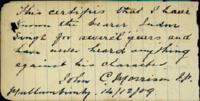 This certifies that I have
known the bearer Inder
Singh for several years and
have never heard anything
against his character.
John C Morrison J.P.
Mullumbimby 14/12/09